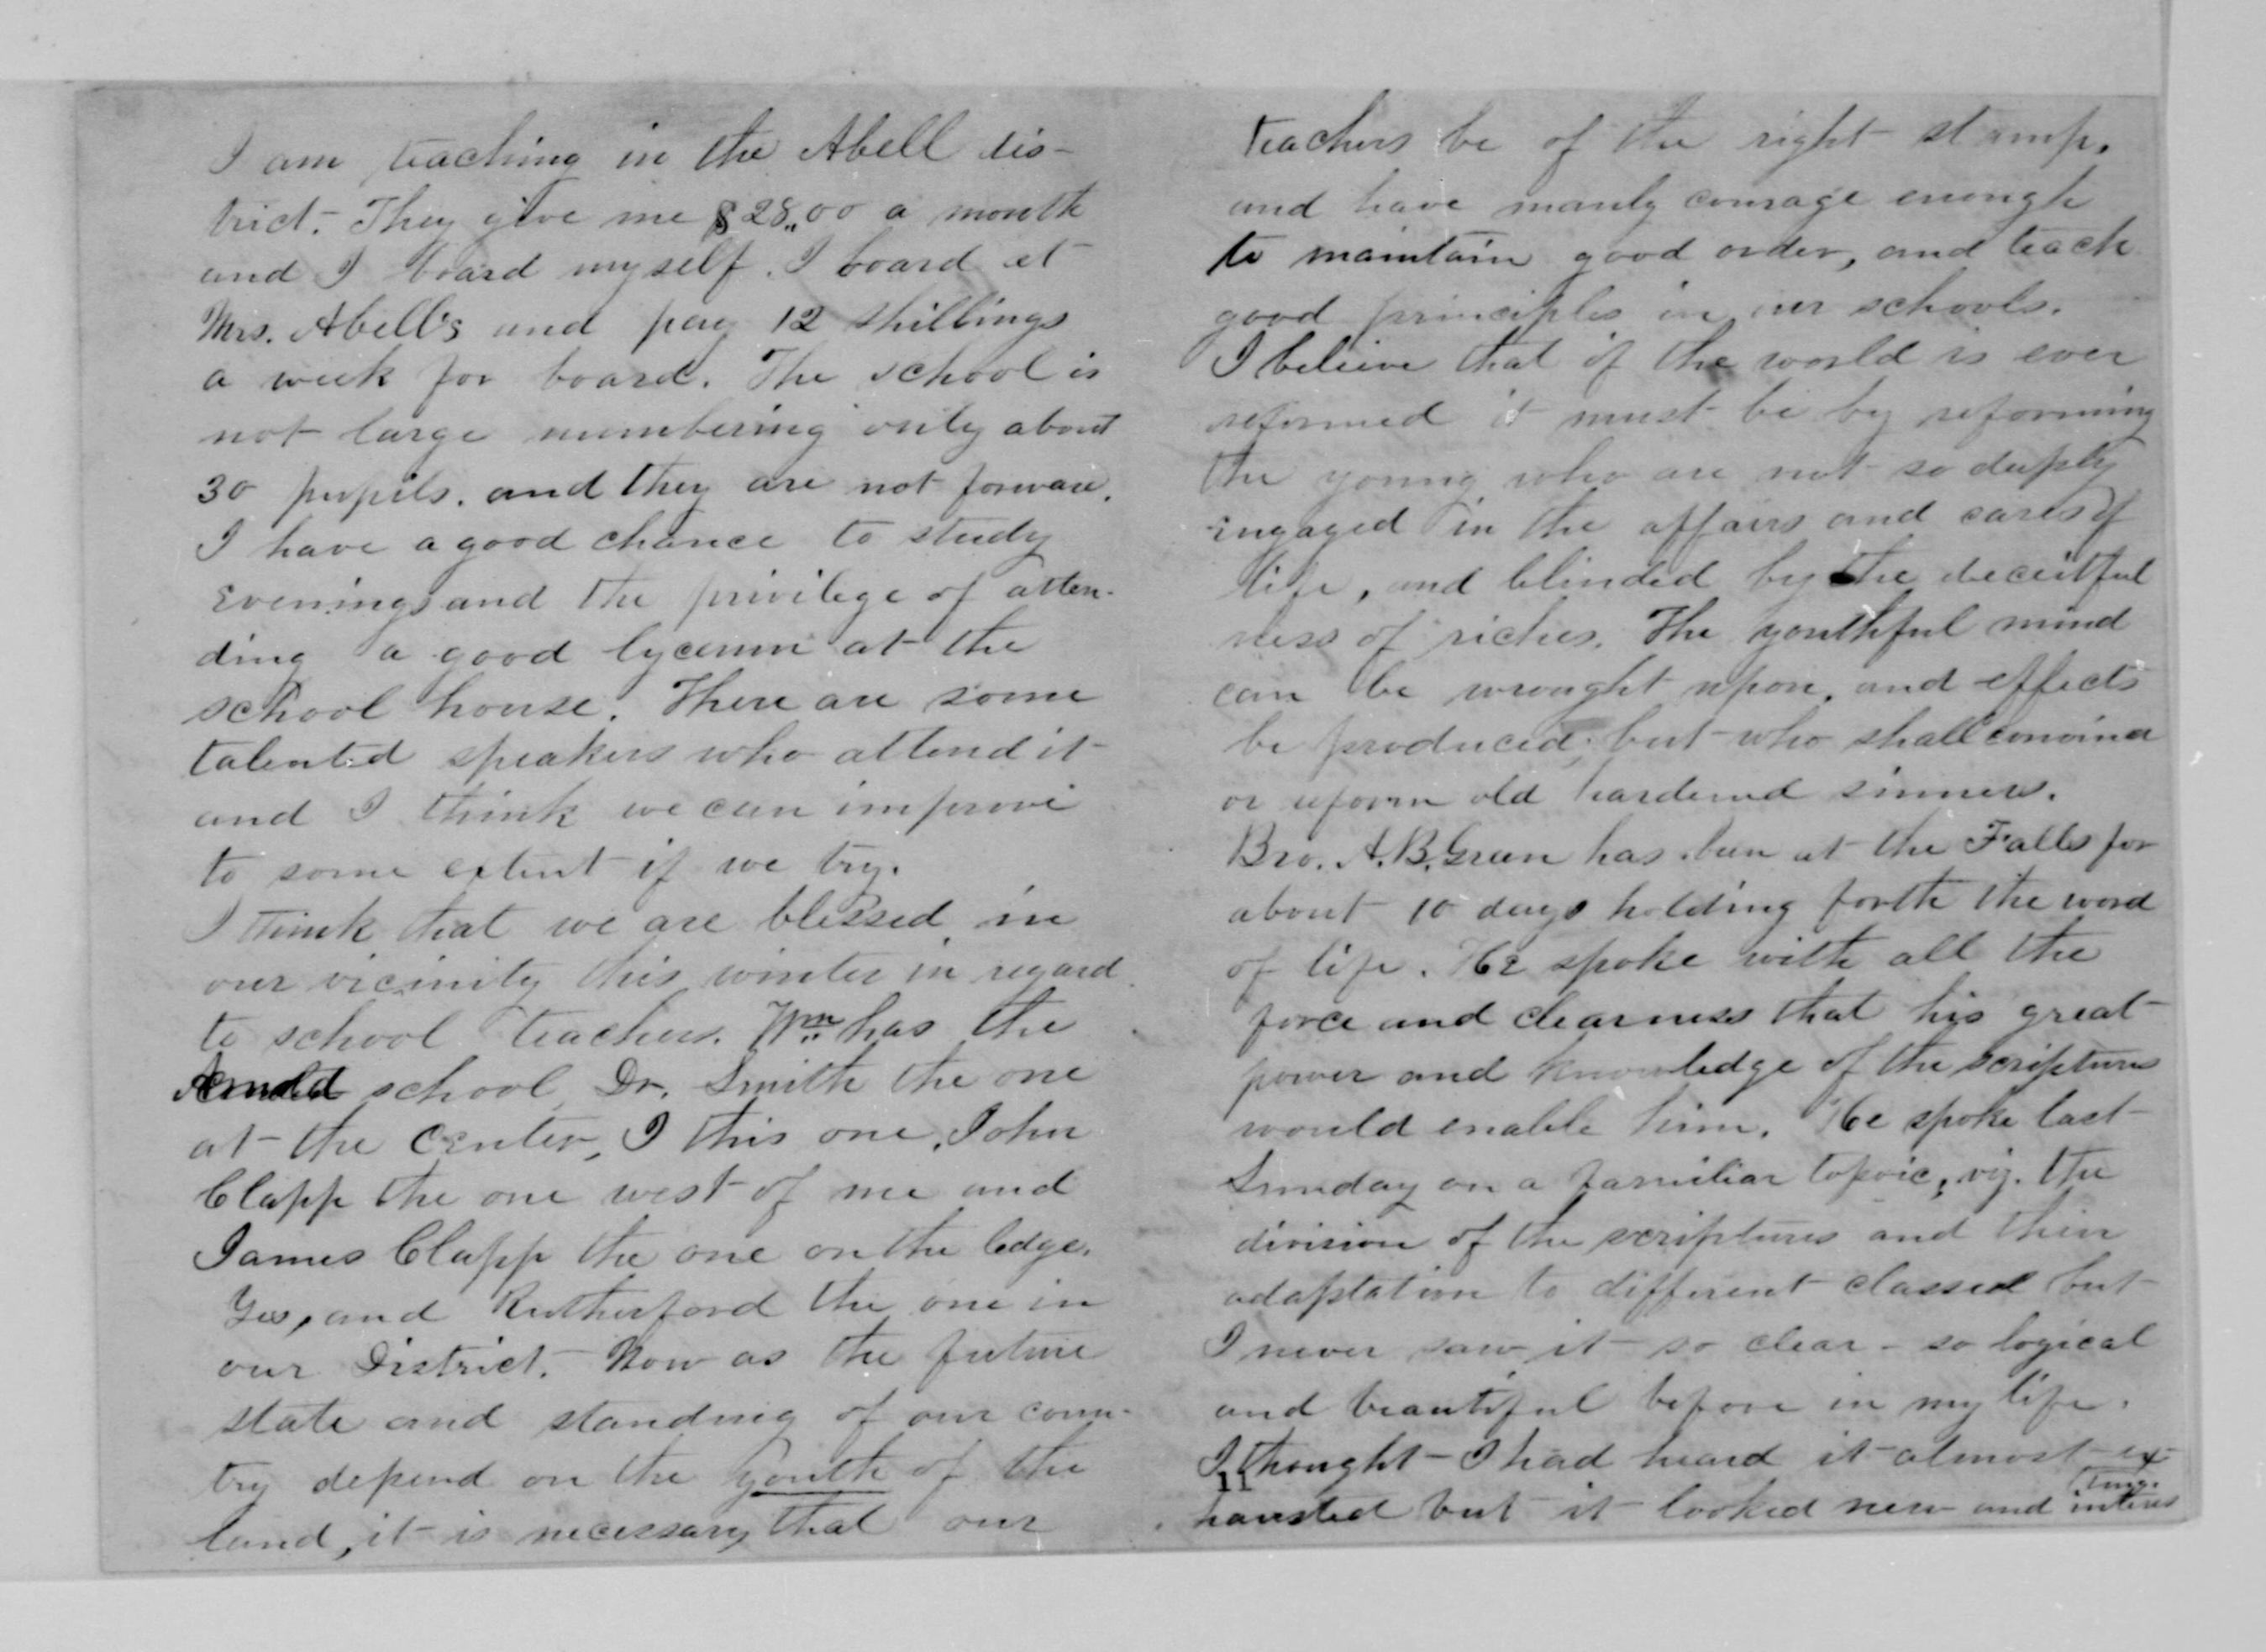 I am teaching in the Abell dis-
trict. They give me $28.00 a month
and I board myself. I board at
Mrs. Abell's and pay 12 shillings
a week for board. The school is
not large numbering only about
30 pupils. and they are not forward.
I have a good chance to study
evenings and the privilege of atten-
ding a good lyceum at the
school house. There are some
talented speakers who attend it
and I think we can improve
to some extent if we try.
I think that we are blessed in
our vicinity this winter in regard
to school teachers. Wm has the
Arnold school, Dr. Smith the one
at the center, I this one, John
Clapp the one west of me and
James Clapp the one on the ledge.
Yes, and Rutherford the one in
our District. Now as the future
state and standing of our coun-
try depend on the youth of the
land, it is necessary that our
teachers be of the right stamp.
and have manly courage enough
to maintain good order, and teach
good principles in our schools.
I believe that if the world is ever
reformed it must be by reforming
the young who are not so deeply
engaged in the affairs and cares of
life, and blinded by the deceitful
ness of riches. The youthful mind
can be wrought upon, and effects
be produced; but who shall convince
or reform old hardened sinners.
Bro. A. B. Green has been at the Falls for
about 10 days holding forth the word
of life. He spoke with all the
force and clearness that his great
power and knowledge of the scriptures
would enable him. He spoke last
Sunday on a familiar topic, viz. the
division of the scriptures and their
adaptation to different classes but
I never saw it so clear - so logical
and beautiful before in my life.
I thought I had heard it almost ex-
hausted but it looked new and interes
ting.